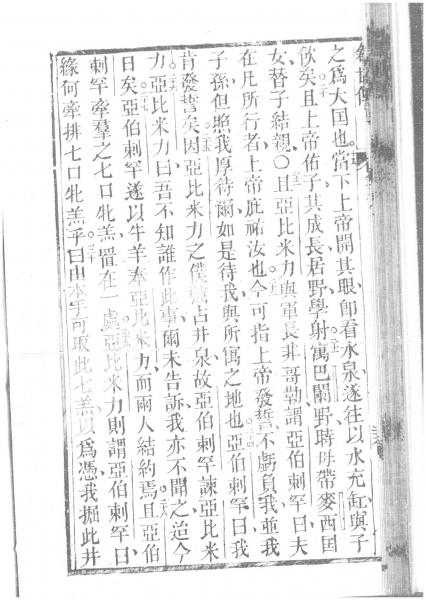 之爲大国也當下上帝開其眼卽看水泉遂往以水充缸與子
飲矣且上帝佑子其成長居野學射寓巴闌野時母帶麥西国
女替子結親○且亞比米力與軍長非哥勒謂亞伯剌罕曰夫
在凡所行者上帝庇祐汝也今可指上帝發誓不虧負我並我
子孫但照我厚待爾如是待我與所寓之地也亞伯剌罕曰我
肯發誓矣因亞比米力之僕 占井泉故亞伯剌罕諫亞比米
力亞比米力曰吾不知誰作此事爾未告訴我亦不聞之迨今
日矣亞伯剌罕遂以牛羊奉亞比米力而兩人結約焉且亞伯
剌罕牽羣之七口牝羔置在一處亞比米力則謂亞伯剌罕曰
緣何牽排七口牝羔乎曰由本手可取此七羔以爲憑我掘此井